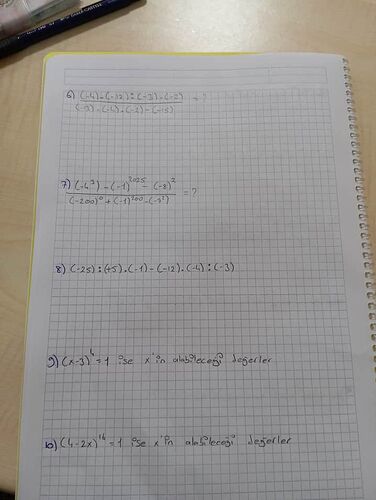 6) (-4)·(-12):(-3)·(-2) = ?
(-3)·(-4)·(-2)-(-15)
7) (-4³)-(-1)²⁰²⁵-(-8)² = ?
(-200)⁰+(-1)²⁰⁰-(-3²)
8) (-25):(+5)·(-1)-(-12)·(-4):(-3)
9) (x-3)⁴=1 ise x'in alabileceği değerler
10) (4-2x)¹⁴=1 ise x'in alabileceği değerler